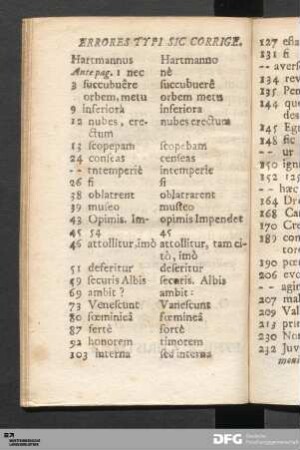 ERRORES TYPI SIC CORRIGE.
Hartmannus Hartmanno
Ante pag. 1 nec nè
3 succubuere succubuerê
orbem, metu orbem metu
9 inferiora inferiora
12 nubes, ere- nubes erectum
ctum
13 scopepam scopebam
24 conseas censeas
-- intemperiè intemperie
26 si si
38 oblatrent oblatrarent
39 museo musteo
43 Opimis. Im- opimis Impendet
45 54 45
46 attollitur, imò attollitur, tam ci-
tò, imò
51 deferitur deseritur
59 securis Albis securis. Albis
69 ambit? ambit:
73 Venescunt Vanescunt
80 fœminicâ fœmineâ
87 fertè fortè
92 honorem timorem
103 interna sed interna
127 esta
131 si
-- averse
134 rev
135 Pen
144 qua
des
145 Eg
148 sic
-- ur
150 ign
152 125
-- hæc
164 Dro
168 Ca
170 Cro
189 con
tore
190 pœ
206 evo
-- agi
207 ma
209 Val
213 pri
230 No
232 Juv
meni
DFG
Deutsche
Forschungsgemeinschaft